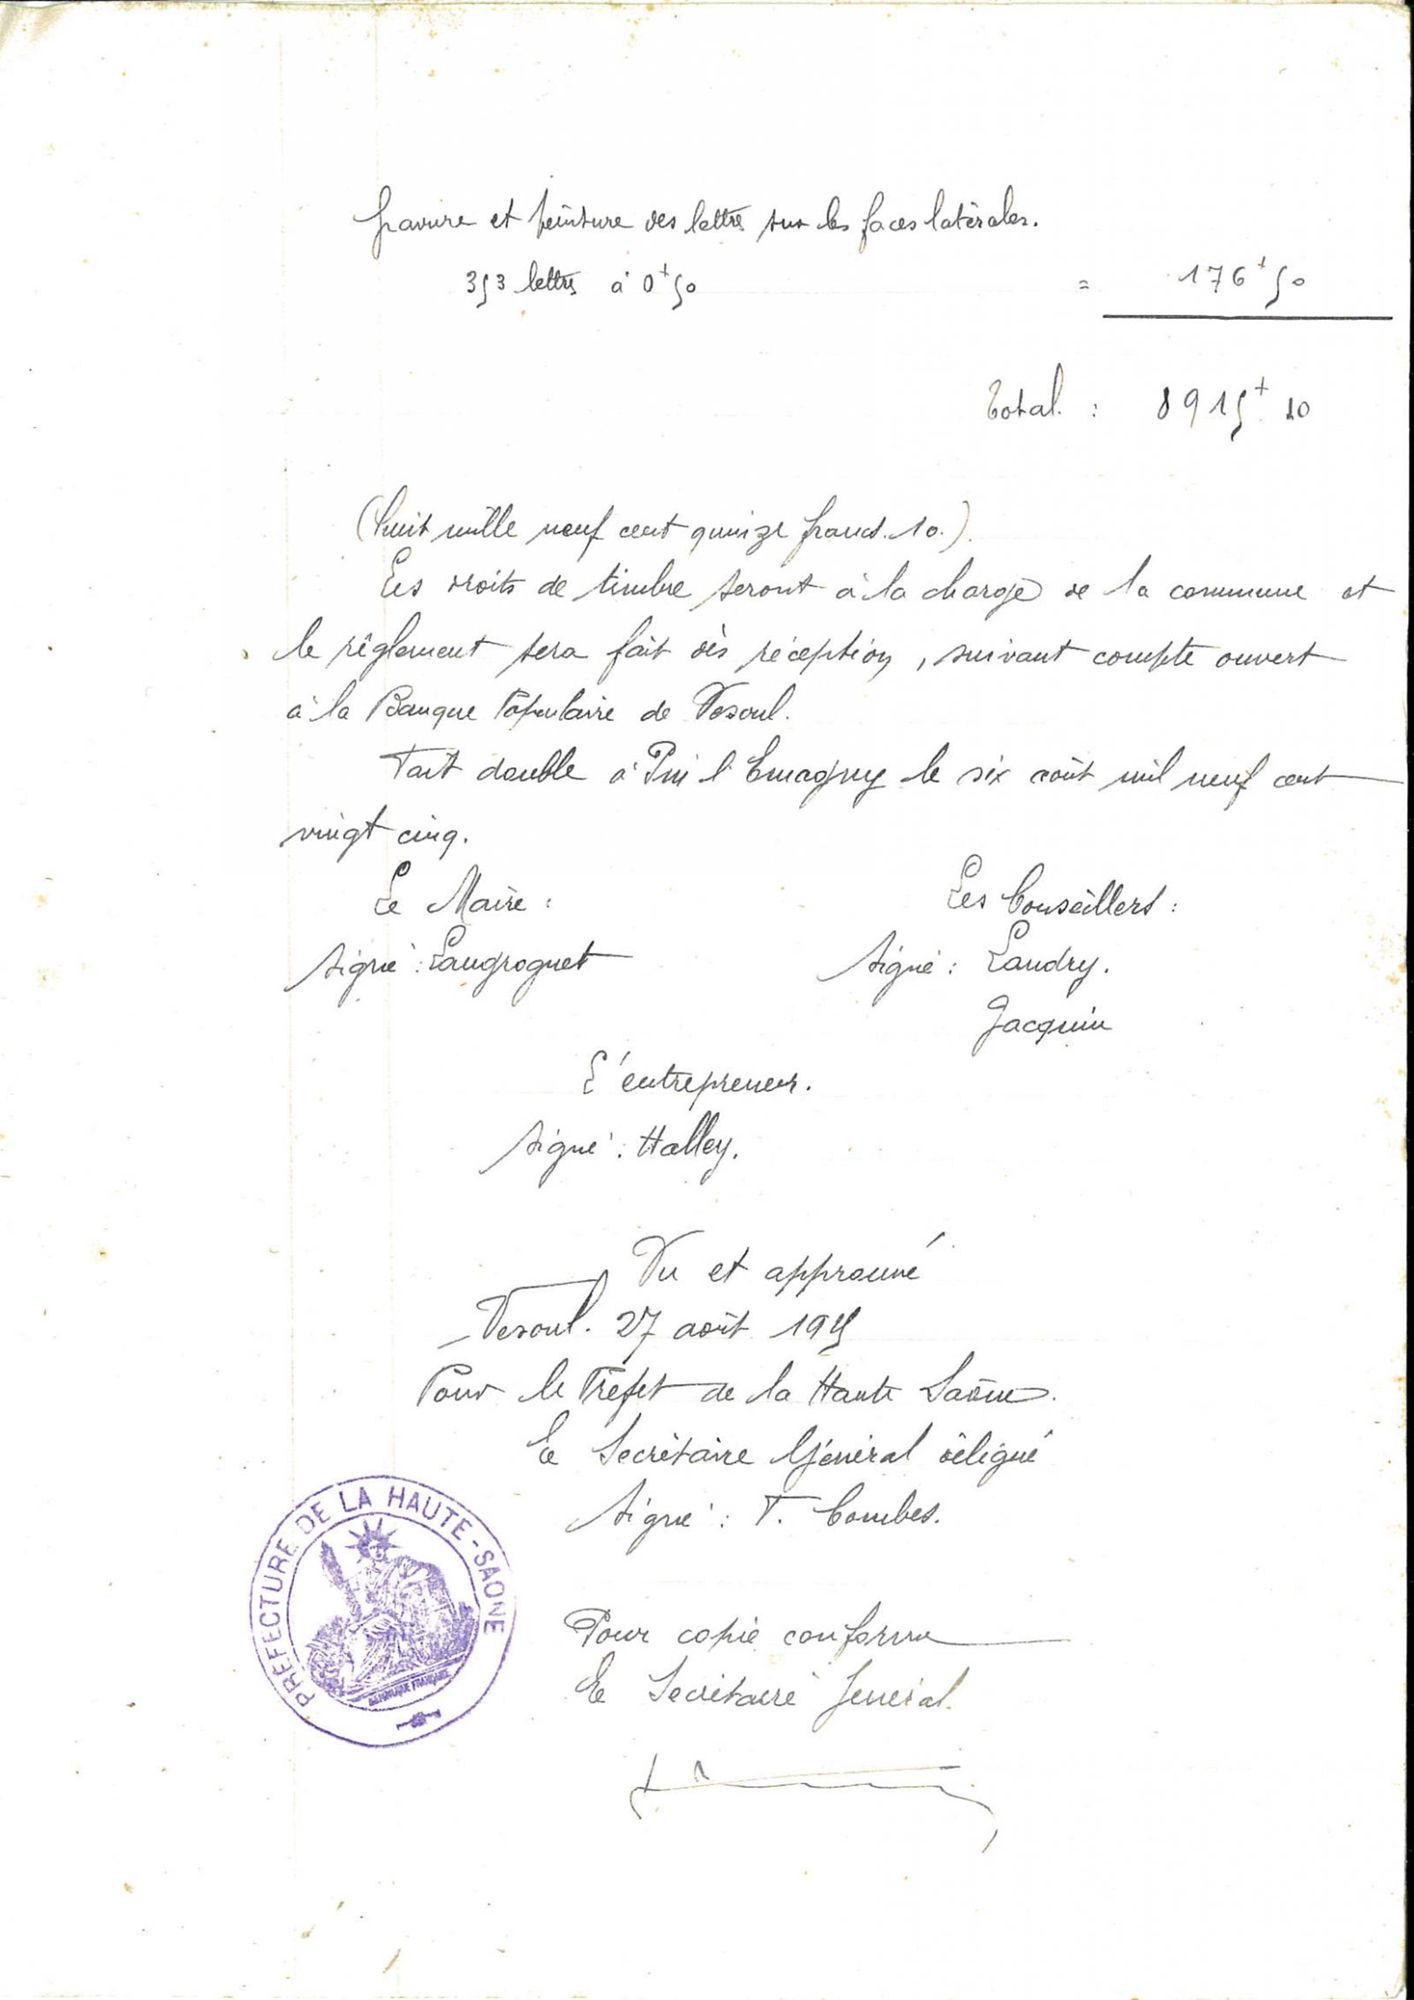 Gravure et peinture des lettres sur les faces latérales.
353 lettres à 0f50 = 176f50
Total : 8915f 10
(huit mille neuf cent quinze francs. 10.).
Les droits de timbre seront à la charge de la commune et
le règlement sera fait dès réception, suivant compte ouvert
à la Banque Populaire de Vesoul.
Fait double à Pin l'Emagny le six août mil neuf cent
vingt cinq.
Le Maire : Les Conseillers :
Signé : Laugroguet Signé : Landry.
Jacquin
L'entrepreneur.
Signé : Halley.
Vu et approuvé
Vesoul. 27 août
Pour le Préfet de la Haute Saône.
Le Secrétaire Général délégué
Signé : T. Combes.
PRÉFECTURE DE LA HAUTE-SAONE
RÉPUBLIQUE FRANÇAISE
Pour copie conforme
Le Secrétaire Général.